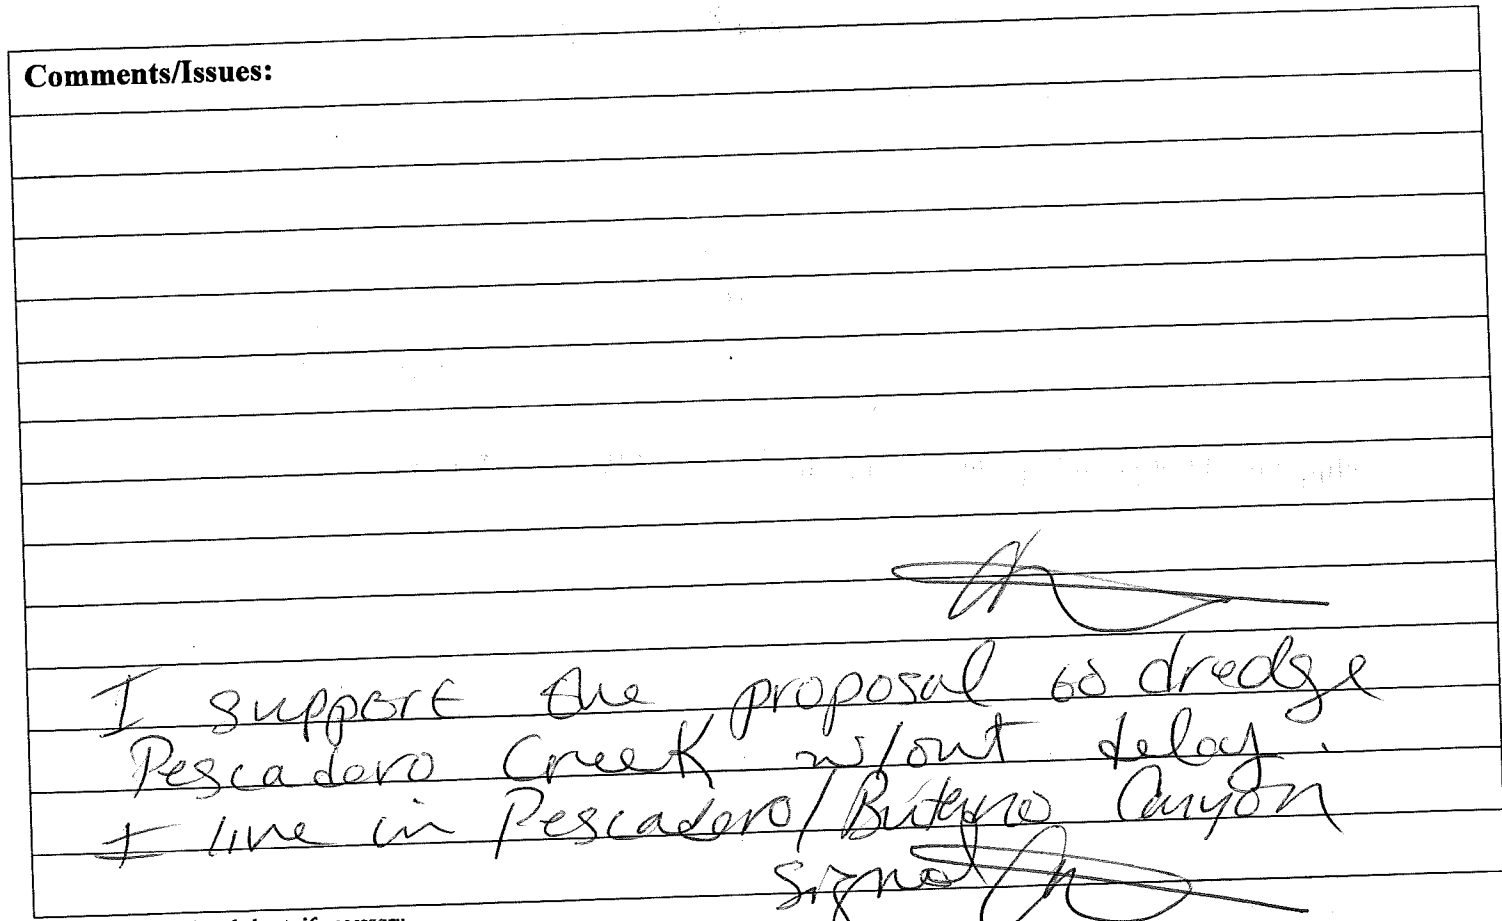 Comments/Issues:
I support the proposal to dredge
Pescadero Creek w/out delay.
I live in Pescadero/Butano Canyon
signed